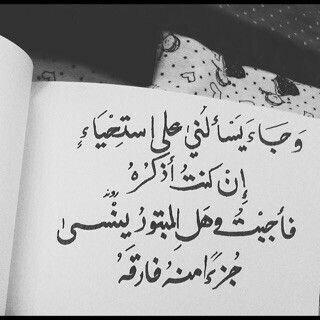 وَجَاءَ يَسْألُنيْ عَلى اسْتِحْيَاءٍ
إِن كَنتُ أذكُرُهُ
فأجَبْتُ وَهَلِ المبْتورُ ينْسىْ
جُزءًا منهُ فارقَهُ